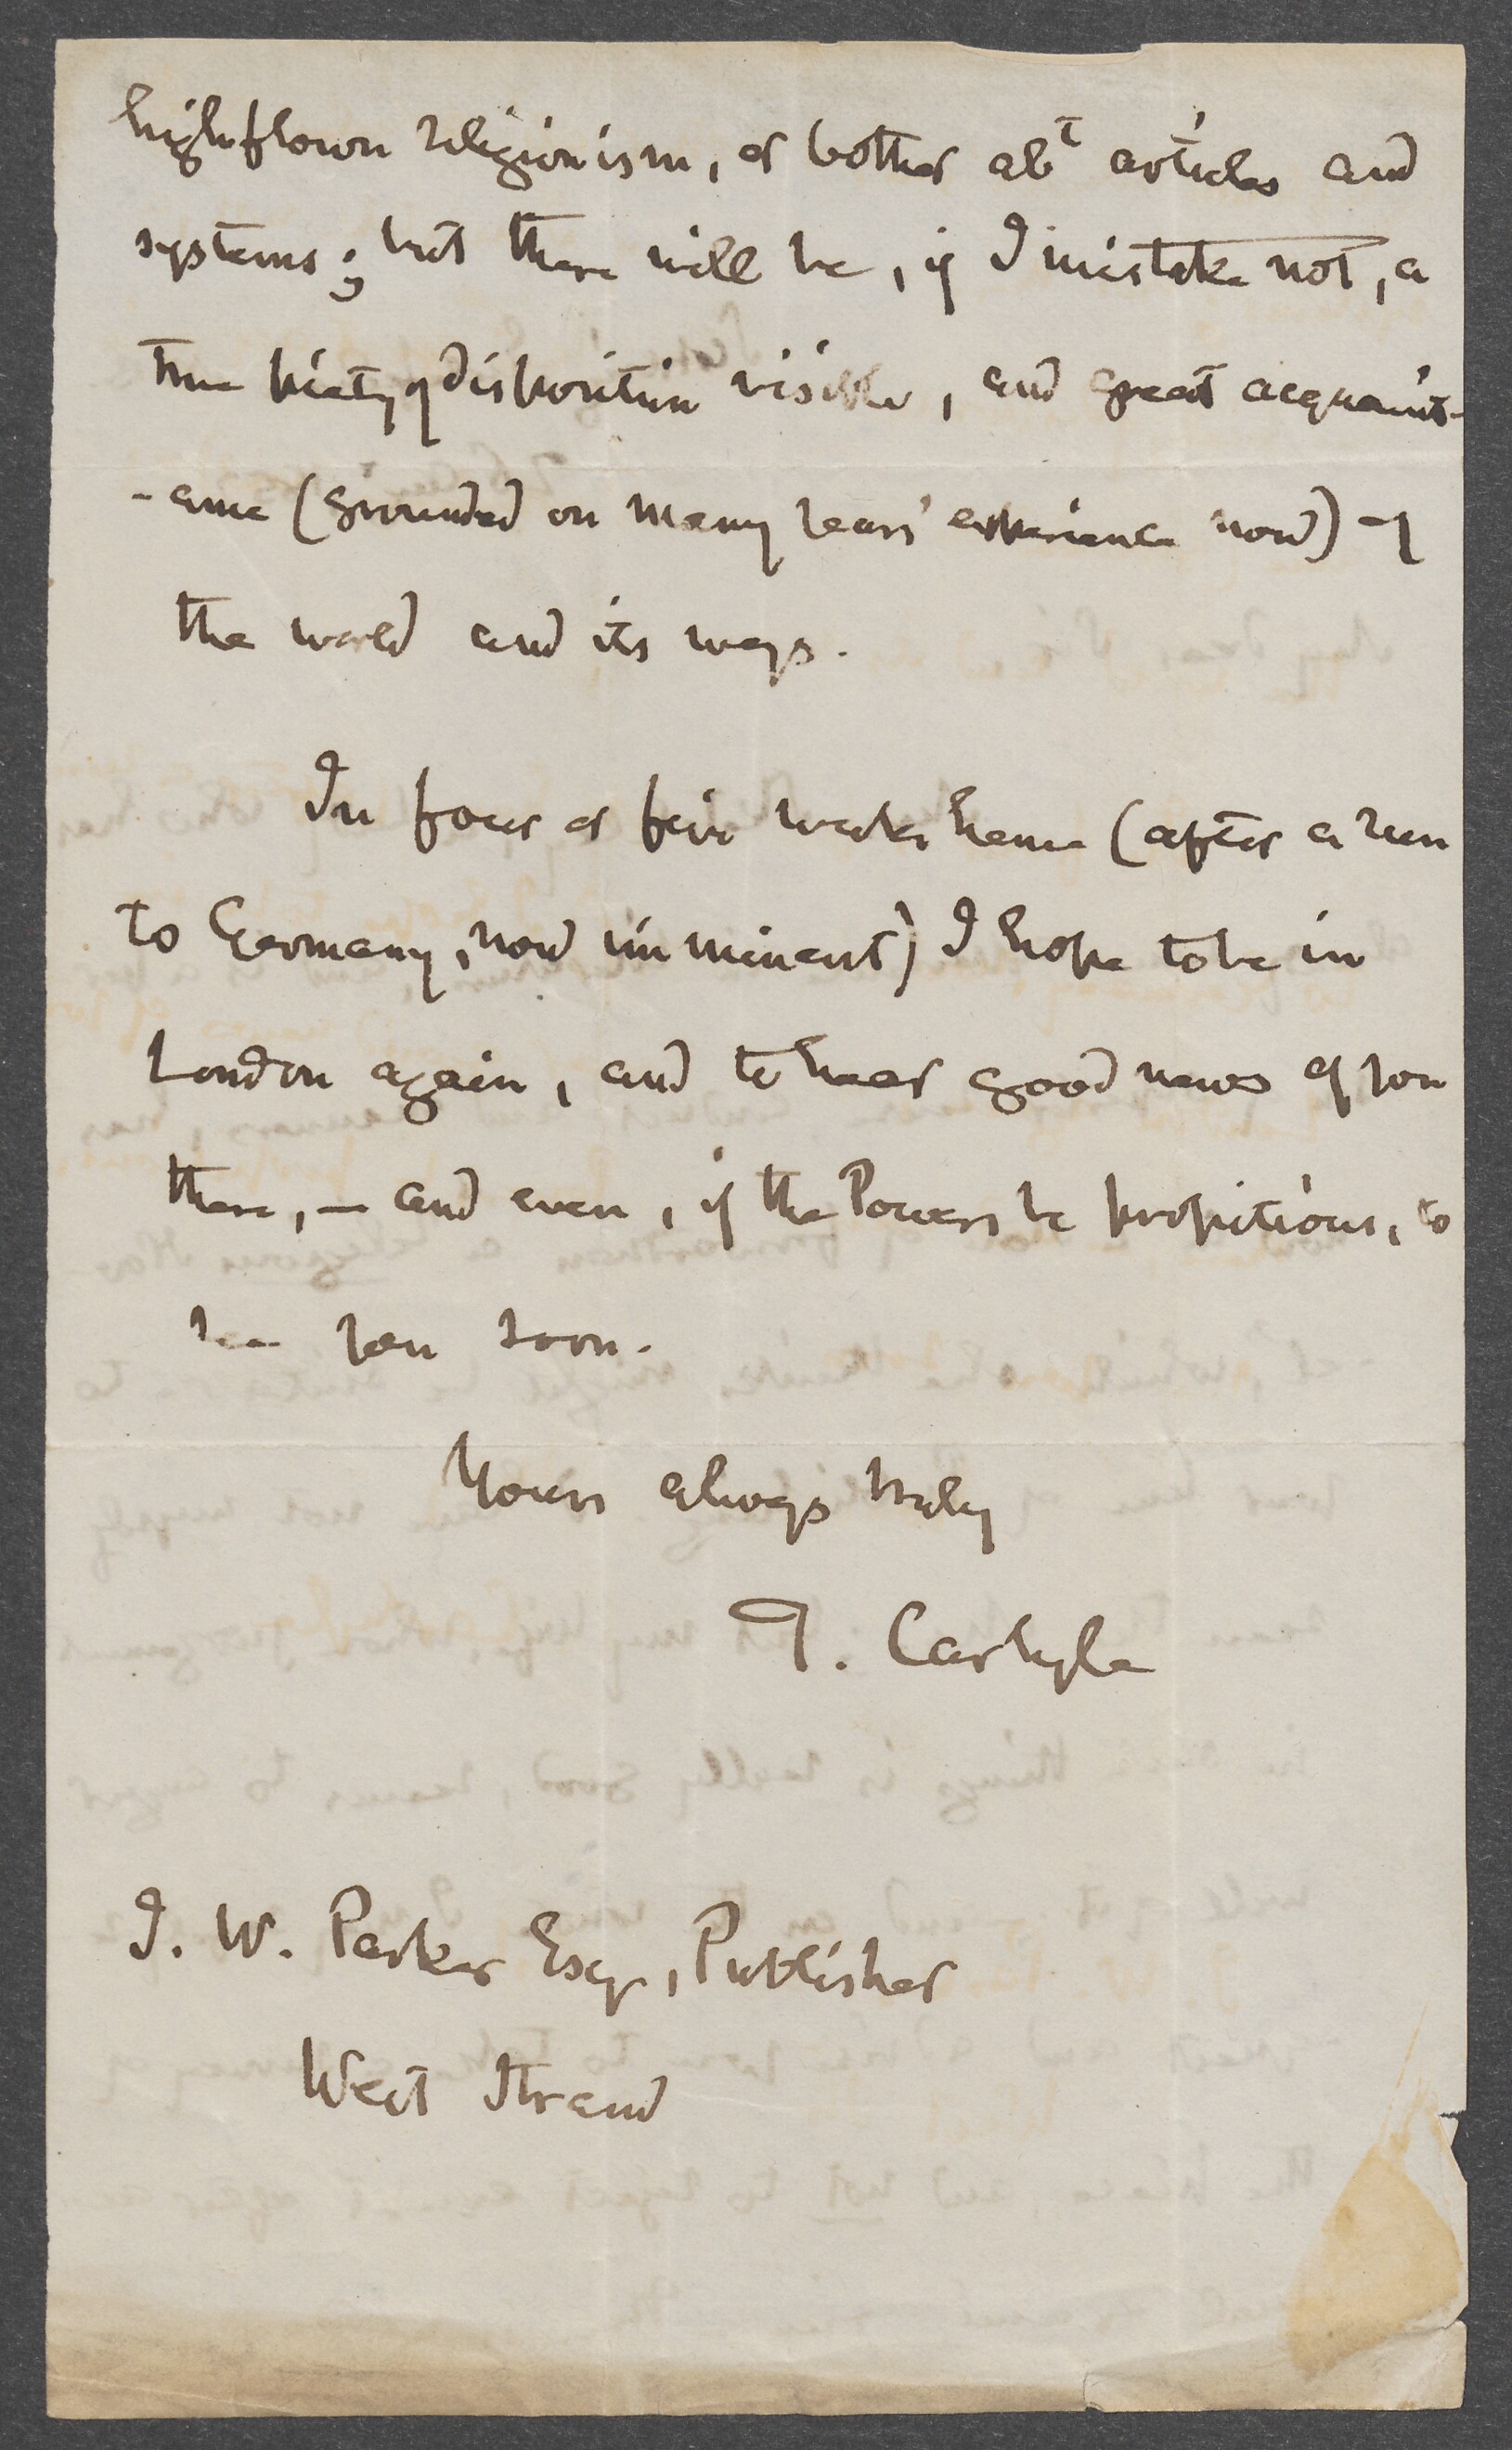 highflown religionism, or bother abt articles and
systems; but there will be, if I mistake not, a
true piety of disposition visible, and great acquaint-
-ance (grounded on many years' experience now) of
the world and its ways.
In four or five weeks hence (after a run
to Germany, now imminent) I hope to be in
London again, and to hear good news of you
there, — and even, if the Powers be propitious, to
see you soon.
Yours always truly
T. Carlyle
J. W. Parker Esqr, Publisher
West Strand